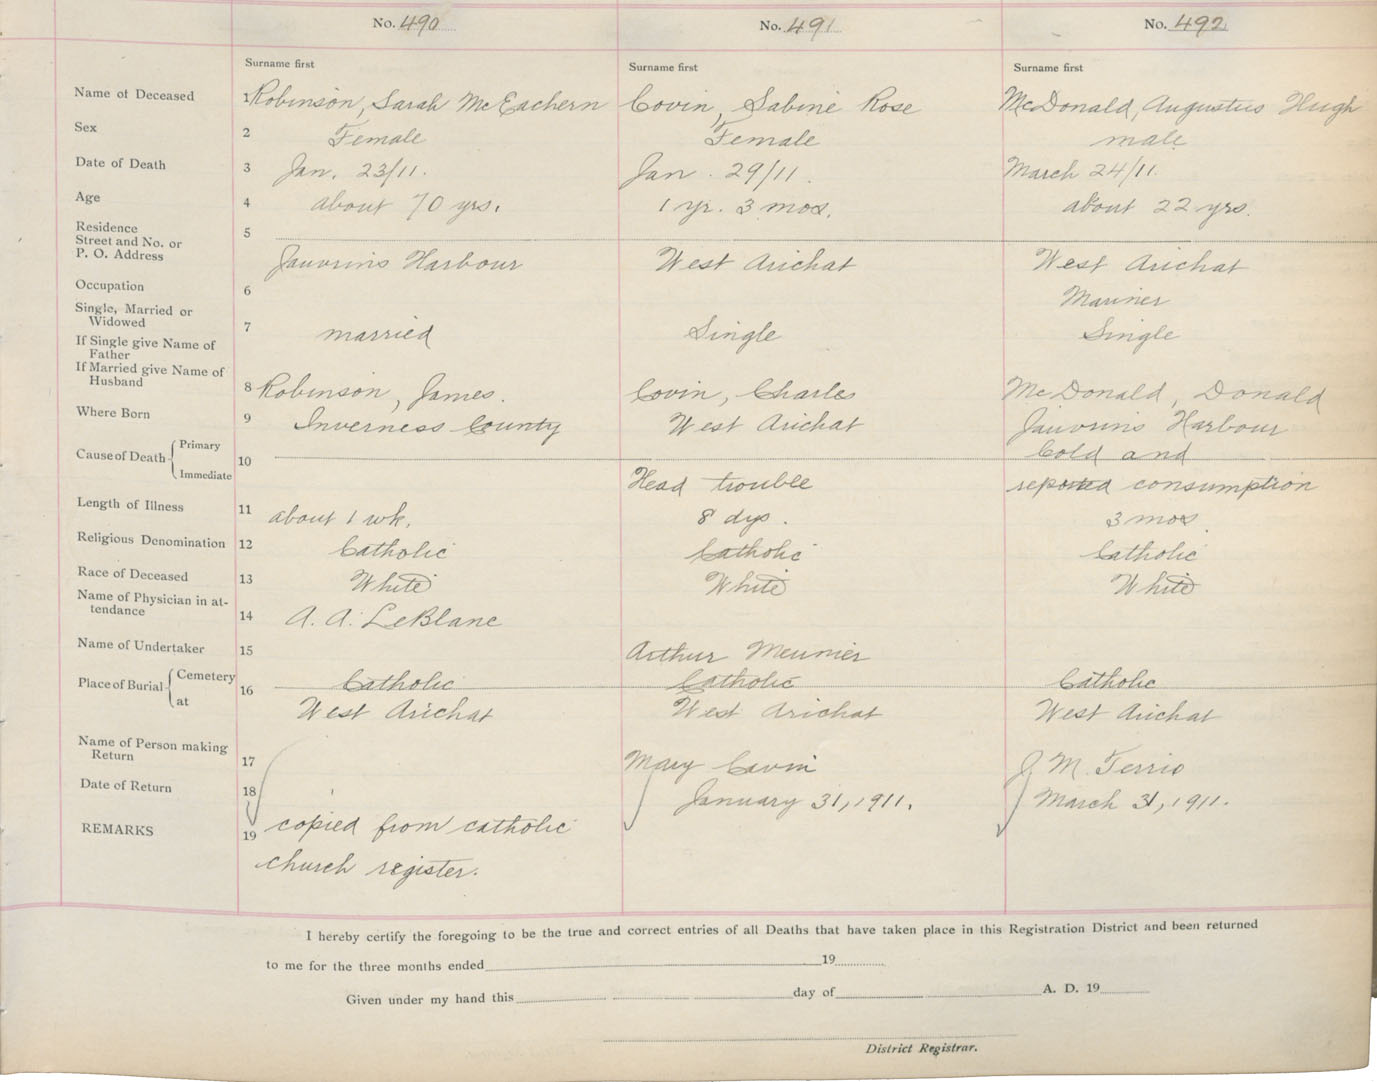 No. 490 No. 491 No. 492
Surname first Surname first Surname first
Name of Deceased 1 Robinson, Sarah McEachern Covin, Sabine Rose McDonald, Augustus Hugh
Sex 2 Female Female male
Date of Death 3 Jan. 23/11. Jan. 29/11. March 24/11.
Age 4 about 70 yrs. 1 yr. 3 mos. about 22 yrs.
Residence
Street and No. or 5
P. O. Address Jauvrins Harbour West Arichat West Arichat
Occupation 6 Mariner
Single, Married or
Widowed 7 married Single Single
If Single give Name of
Father
If Married give Name of
Husband 8 Robinson, James. Covin, Charles McDonald, Donald
Where Born 9 Inverness County West Arichat Jauvrins Harbour
Cause of Death Primary 10 Cold and
Immediate Head trouble reported consumption
Length of Illness 11 about 1 wk. 8 dys. 3 mos
Religious Denomination 12 Catholic Catholic Catholic
Race of Deceased 13 White White White
Name of Physician in at-
tendance 14 A. A. LeBlanc
Name of Undertaker 15 Arthur Meunier
Place of Burial Cemetery 16 Catholic Catholic Catholic
at West Arichat West Arichat West Arichat
Name of Person making
Return 17 Mary Covin J. M. Terrio
Date of Return 18 January 31, 1911. March 31, 1911.
REMARKS 19 copied from catholic
church register.
I hereby certify the foregoing to be the true and correct entries of all Deaths that have taken place in this Registration District and been returned
to me for the three months ended 19
Given under my hand this day of A. D. 19
District Registrar.